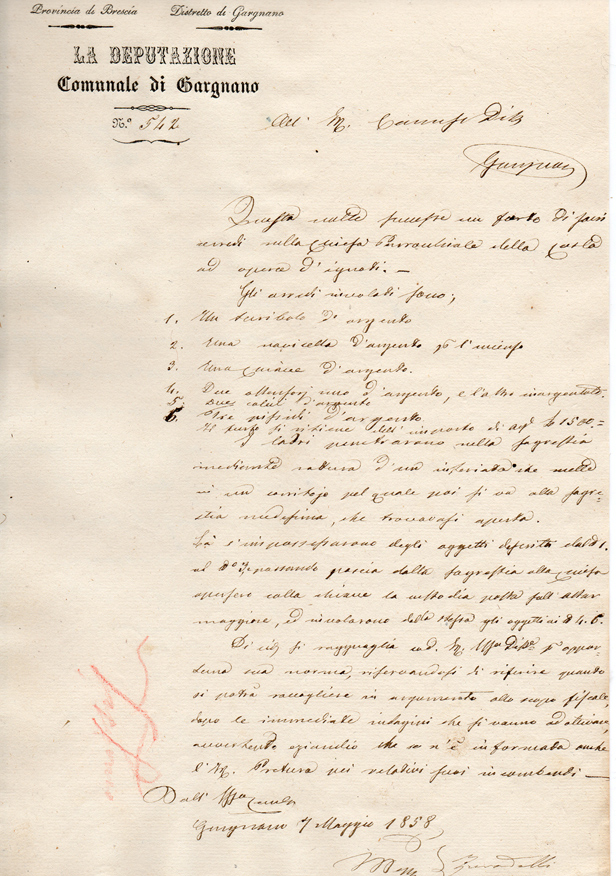 Provincia di Brescia Distretto di Gargnano
LA DEPUTAZIONE
Comunale di Gargnano
N.º 542
All' R. Commess Dist
Gargnano
Questa notte successe un furto di sacri
arredi nella Chiesa Parrochiale della Costa
ad opera d'ignoti. —
Gli arredi involati sono;
1. Un turibolo d'argento
2. Una navicella d'argento pr l'incenso
3. Una Croce d'argento.
4. Due ostensorj uno d'argento, e l'altro inargentato.
5. Due calici d'argento
6. Tre pissidi d'argento.
Il furto si ritiene dell'importo di £ 1500.=
I ladri penetrarono nella sagrestia
mediante rottura d'un inferiata che mette
in un corritojo pel quale poi si va alla sagre-
stia medesima, che trovavasi aperta.
Là s'impossessarono degli oggetti descritti dal # 1.
al passando poscia dalla sagrestia alla Chiesa
apersero colla chiave la custodia posta sull'altar
maggiore, ed involarono dalla stessa gli oggetti ai # 4. 6.
Di ciò si ragguaglia cod. R. Uffo pr oppor-
tuna sua norma, riservandosi di riferire quanto
si potrà raccogliere in argomento allo scopo fiscale,
dopo le immediate indagini che si vanno ad attivare,
avvertendo eziandio che se n'è informata anche
l'R. Pretura pei relativi suoi incombenti —
Dall' Uffo
Gargnano 7 Maggio 1858